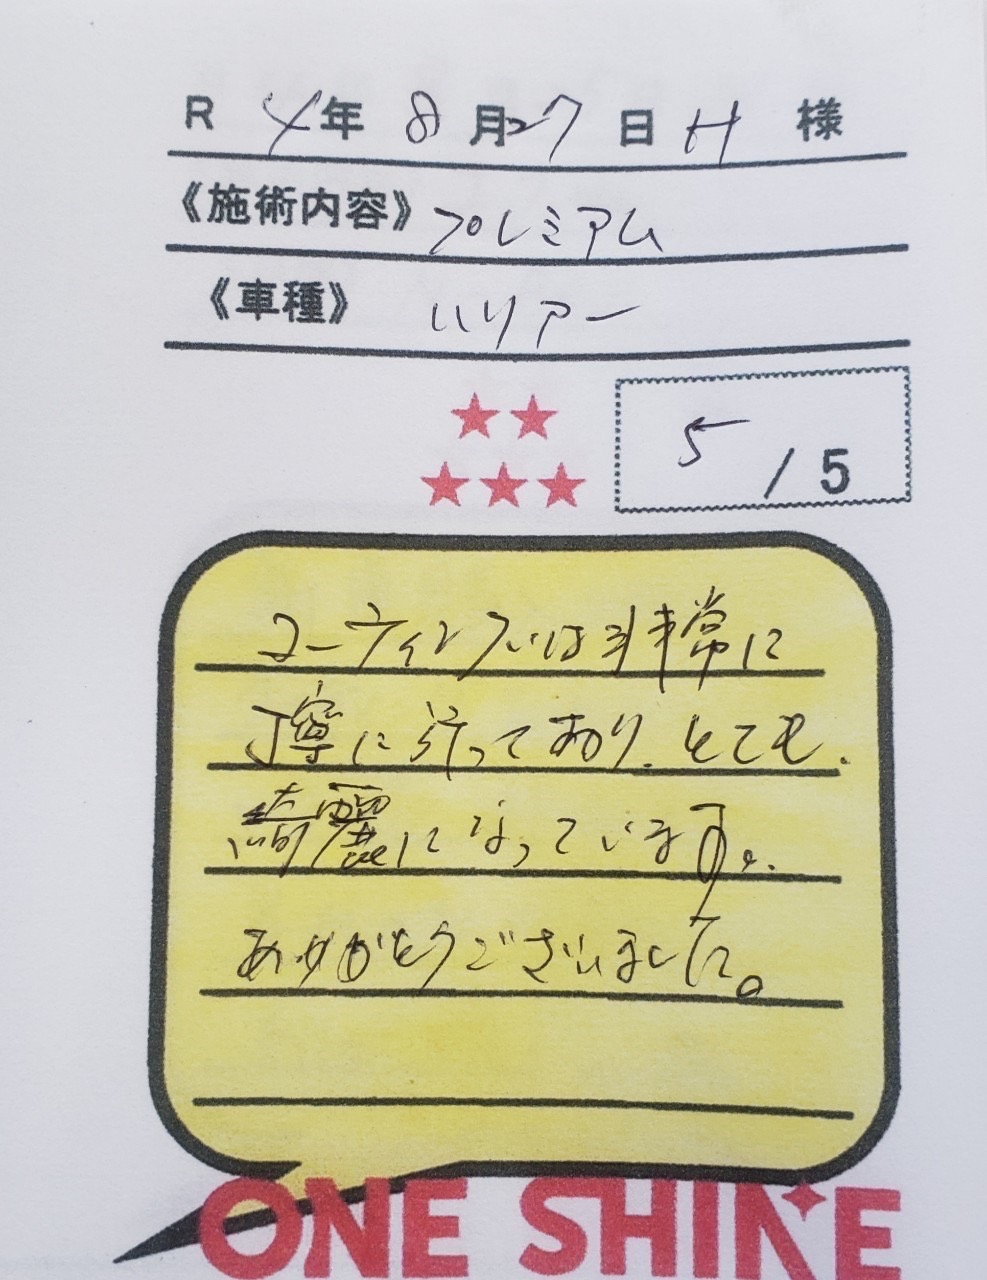 R 4年 8月27日 H 様
《施術内容》プレミアム
《車種》 ハリアー
★★
★★★
5 / 5
コーティングは非常に
丁寧に行っており、とても
綺麗になっています。
ありがとうございました。
ONE SHINE